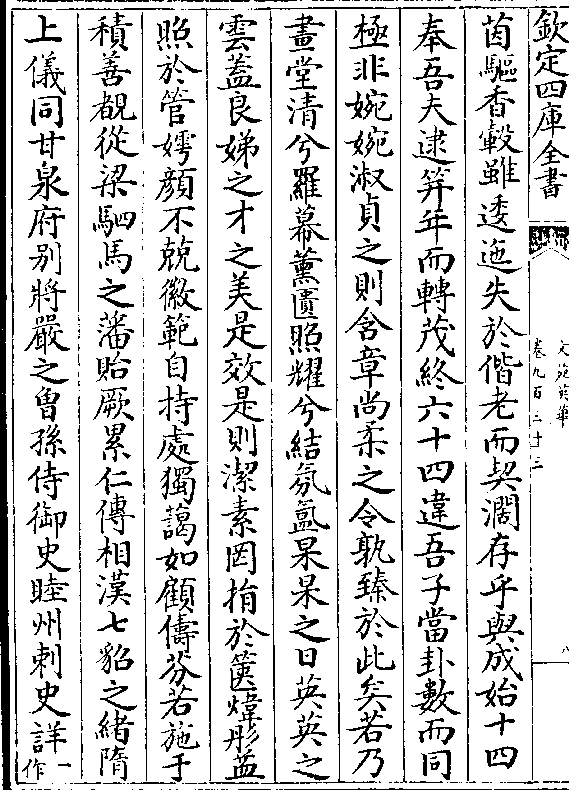 欽定四庫全書
文苑英華
卷九百三十三
八
茵驅香轂雖逶迤失於偕老而契濶存乎與成始十四
奉吾夫逮笄年而轉茂終六十四違吾子當卦數而同
極非婉婉淑貞之則含章尚柔之令孰臻於此矣若乃
畫堂清兮羅幕薰匳照耀兮結氛氲杲杲之日英英之
雲蓋良娣之才之美是效是則潔素罔揹於篋煒彤葢
照於管嫮顔不兢徽範自持處獨藹如顧儔芬若施于
積善覩從梁駟馬之藩貽厥累仁傳相漢七貂之緒隋
上儀同甘泉府别將嚴之曾孫侍御史睦州刺史詳一作